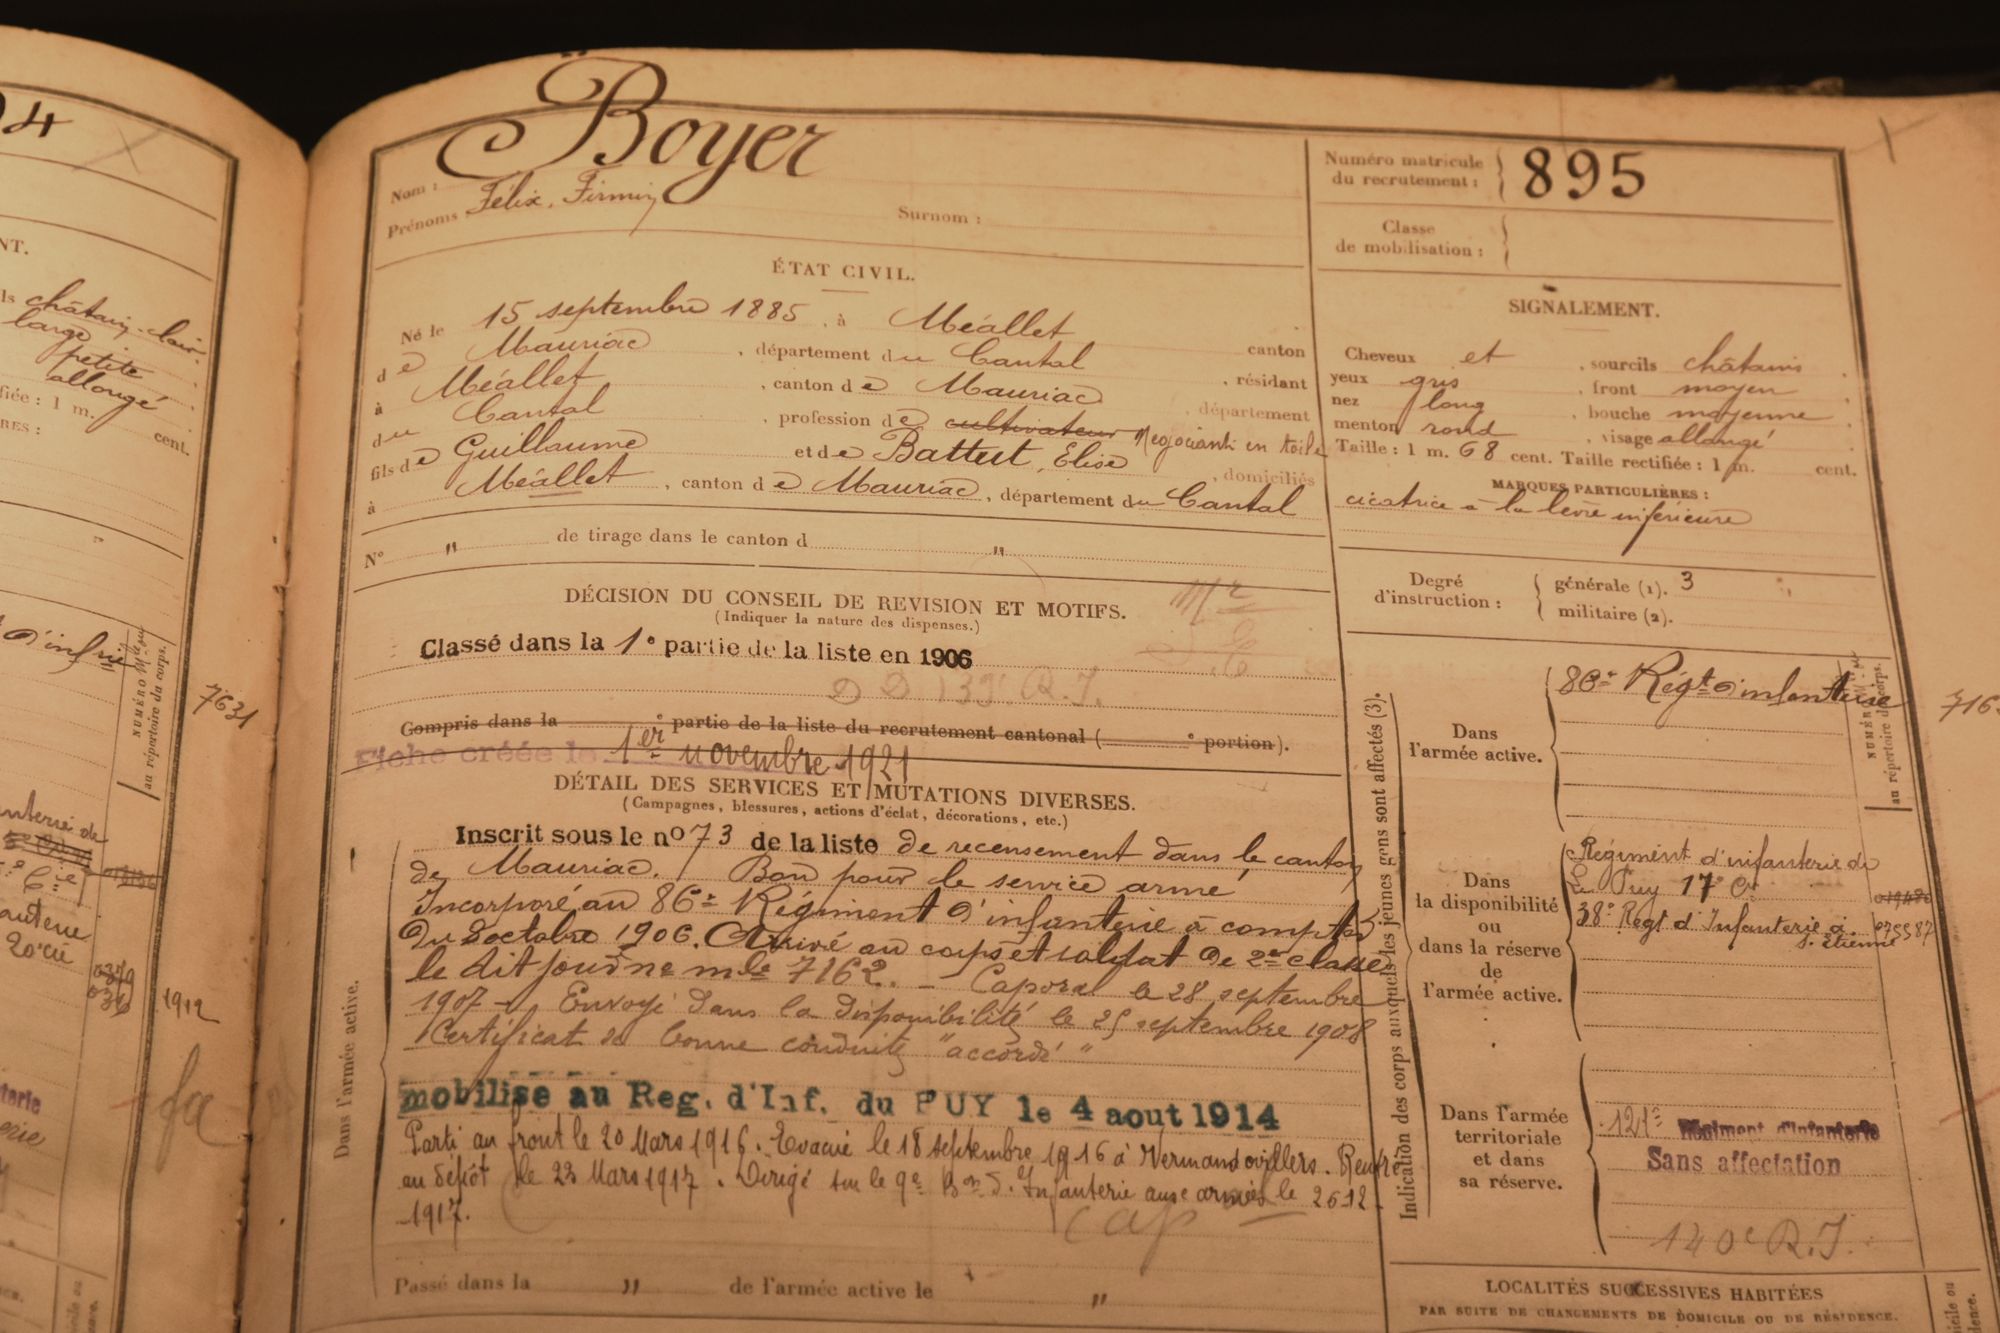 94
NT.
ls châtain-clair
large
petite
allongé
fiée : 1 m. cent.
RES :
d'infrie
NUMÉRO Mle ou
au répertoire du corps.
7631
nterie de
20e Cie
1912
fa
Nom : Boyer
Prénoms : Félix, Firmin Surnom :
Numéro matricule
du recrutement : 895
Classe
de mobilisation :
ÉTAT CIVIL.
Né le 15 septembre 1885, à Méallet canton
de Mauriac, département du Cantal
à Méallet, canton de Mauriac, résidant
du Cantal, profession de cultivateur Négociant en toile, département
fils de Guillaume et de Battut, Elise, domiciliés
à Méallet, canton de Mauriac, département du Cantal
N° " de tirage dans le canton d "
SIGNALEMENT.
Cheveux et, sourcils châtains
yeux gris, front moyen
nez long, bouche moyenne
menton rond, visage allongé
Taille : 1 m. 68 cent. Taille rectifiée : 1 m. cent.
MARQUES PARTICULIÈRES :
cicatrice à la lèvre inférieure
Degré
d'instruction :
générale (1). 3
militaire (2).
DÉCISION DU CONSEIL DE REVISION ET MOTIFS.
(Indiquer la nature des dispenses.)
Classé dans la 1e partie de la liste en 1906
D D 139e R.I.
Compris dans la e partie de la liste du recrutement cantonal ( e portion).
Fiche créée le 1er novembre 1921
DÉTAIL DES SERVICES ET MUTATIONS DIVERSES.
(Campagnes, blessures, actions d'éclat, décorations, etc.)
Dans l'armée active.
Inscrit sous le no 73 de la liste de recensement dans le canton
de Mauriac. Bon pour le service armé
Incorporé au 86e Régiment d'infanterie à compter
du 8 octobre 1906. Arrivé au corps et soldat de 2e classe
le dit jour ne mle 7162. - Caporal le 28 septembre
1907 - Envoyé dans la disponibilité le 25 septembre 1908
Certificat de bonne conduite "accordé"
mobilise au Reg. d'Inf. du PUY le 4 aout 1914
Parti au front le 20 Mars 1916. Evacué le 18 septembre 1916 à Vermandovillers. Rentré
au dépôt le 23 Mars 1917. Dirigé sur le 9e Bon d'Infanterie aux armées le 26-12-
1917.
Cap
Passé dans la " de l'armée active le "
Indication des corps auxquels les jeunes gens sont affectés (3).
Dans
l'armée active.
86e Régt d'infanterie
NUMÉRO Mle ou
au répertoire du corps.
716
Dans
la disponibilité
ou
dans la réserve
de
l'armée active.
Régiment d'infanterie de
Le Puy 17e Cie
38e Regt d'Infanterie à St Etienne 075587
Dans l'armée
territoriale
et dans
sa réserve.
121e Régiment d'Infanterie
Sans affectation
140e R.I.
LOCALITÉS SUCCESSIVES HABITÉES
PAR SUITE DE CHANGEMENTS DE DOMICILE OU DE RÉSIDENCE.